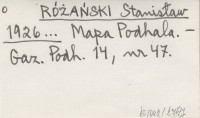 o RÓŻAŃSKI Stanisław
1926... Mapa Podhala. –
Gaz. Podh. 14, nr 47.